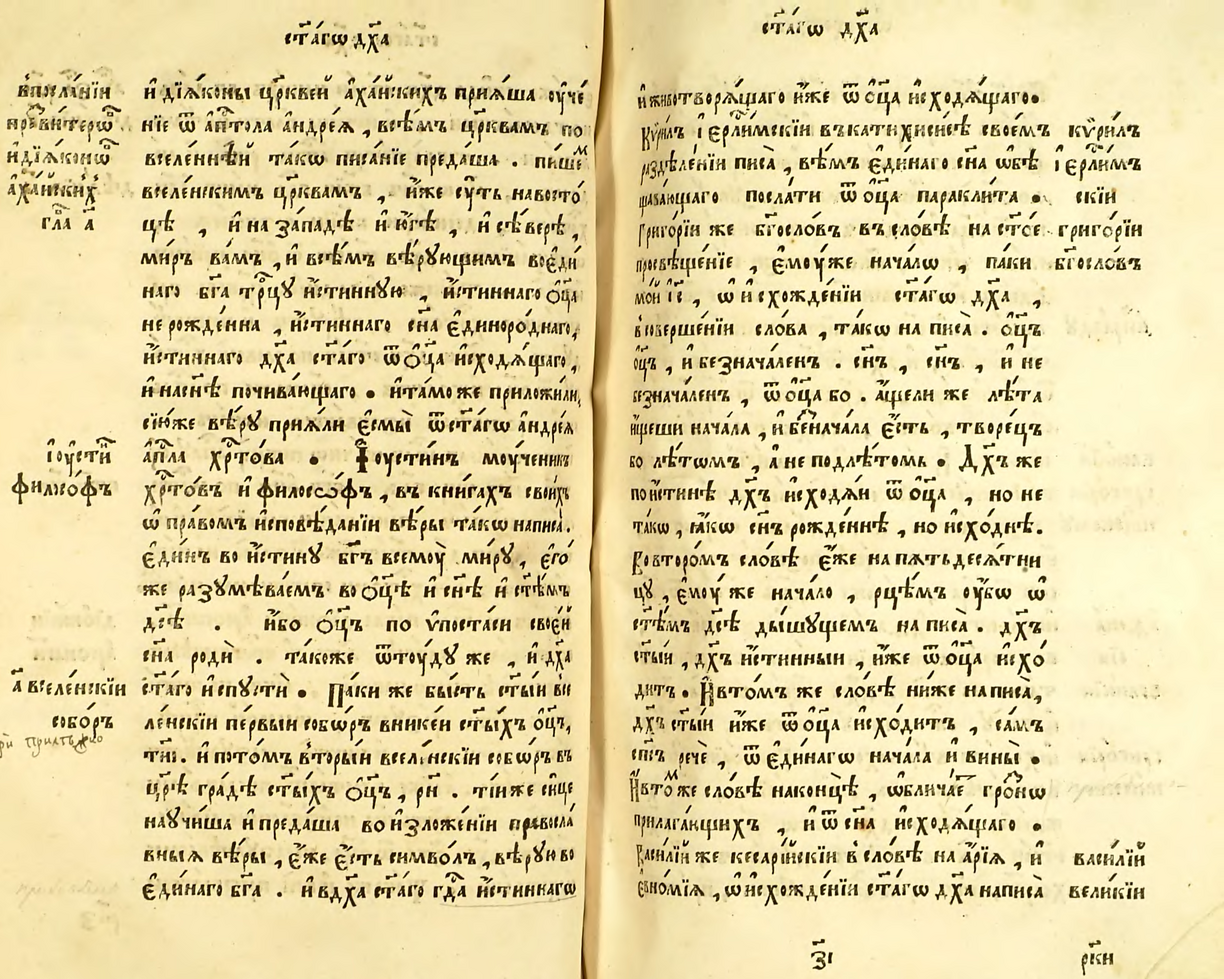 ст҃а́гѡ дх҃а
впосла́нїи
презви́терѡ҆в
и҆дїа҆́конѡв
а҆ха́йских
гл҃а а҃
и҆ дїѧ́коны цр҃квей а҆ха́йскихъ прїѧ́ша ᲂу҆че́
нїе ѿ а҆пⷭ҇тола а҆ндре́ѧ , всѣ́мъ цр҃квамъ по
вселе́ннѣй та́кѡ писа́нїе преда́ша . пи́шеⷨ
вселе́нскимъ цр҃квамъ , и҆́же сꙋ́ть навосто́
цѣ , и҆ на за́падѣ и҆ ю҆́гѣ , и҆ сѣ́верѣ ,
ми́ръ ва́мъ , и҆ всѣ́мъ вѣ́рꙋющимъ воє҆ди
наго бг҃а трⷪ҇цꙋ и҆́стиннꙋю , и҆́стиннаго ѻ҆ц҃а
не рожде́нна , и҆́стиннаго сн҃а є҆диноро́днаго ,
и҆́стиннаго дх҃а ст҃а́го ѿ ѻ҆ц҃а и҆сходѧ́щаго ,
и҆ насн҃ѣ почива́ющаго • и҆та́мо же приложи́ли ,
сїю́же вѣ́рꙋ прїѧ́ли є҆смы̀ ѿст҃а́гѡ а҆ндре́ѧ
і҆ᲂу҆сти́н
філосо́фъ
а҆пⷭ҇ла хрⷭ҇то́ва • І҆ᲂу҆сти́нъ мᲂу́ченикъ
хрⷭ҇то́въ и҆ филосо́фъ , въ кни́гахъ свои́хъ
ѡ҆ пра́вомъ и҆сповѣ́данїи вѣ́ры та́кѡ написа̀ .
є҆ди́нъ во и҆́стинꙋ бг҃ъ всемᲂу̀ ми́рꙋ , є҆го́
же разꙋмѣва́емъ во ѻ҆ц҃ѣ и҆ сн҃ѣ и҆ ст҃ѣ́мъ
дс҃ѣ . и҆́бо ѻ҆ц҃ъ по ѵ҆поста́си свое́й
сн҃а родѝ . та́коже ѿтᲂу́дꙋ же , и҆ дх҃а
а҃ вселе́нскїи
собо́ръ
ст҃а́го и҆спꙋстѝ • Па́ки же бы́сть ст҃ы́и все
ле́нскїи пе́рвыи собо́ръ вникє́и ст҃ы́хъ ѻ҆ц҃ъ ,
ти҃і . и҆ пото́мъ вторы́и вселе́нскїи собо́ръ въ
цр҃ѣ гра́дѣ ст҃ы́хъ ѻ҆ц҃ъ , рн҃ . ті́и же си́це
наꙋчи́ша и҆ преда́ша во и҆зложе́нїи правосла́
вныѧ вѣ́ры , є҆́же є҆́сть симво́лъ , вѣ́рꙋю во
є҆ди́наго бг҃а . и҆ вдх҃а ст҃а́го гдⷭ҇а и҆́стиннагѡ
ст҃а́гѡ дх҃а
и҆ животворѧ́щаго и҆́же ѿ ѻ҆ц҃а и҆сходѧ́щаго •
Кѵ́рилъ і҆ерⷭ҇ли́мскїи въ катихи́сисѣ свое́мъ
раздѣле́нїи писа̀ , вѣ́мъ є҆ди́наго сн҃а ѡ҆бѣ
щава́ющаго посла́ти ѿ ѻ҆ц҃а паракли́та •
кѵ́рилъ
і҆ерⷭ҇ли́мъ
скїи
Григо́рїи же бг҃осло́въ въ сло́вѣ на ст҃о́е
просвѣще́нїе , є҆мᲂу́же нача́лѡ , па́ки
григо́рїи
бг҃осло́въ
мо́й і҆с҃ , ѡ҆ и҆схожде́нїи ст҃а́гѡ дх҃а ,
всоверше́нїи сло́ва , та́кѡ на писа̀ . ѻ҆ц҃ъ
ѻ҆ц҃ъ , и҆ безнача́ленъ . сн҃ъ , сн҃ъ , и҆ не
безнача́ленъ , ѿ ѻ҆ц҃а бо . а҆́щели же лѣ́та
и҆́щеши нача́ла , и҆ безнача́ла є҆́сть , творе́цъ
бо лѣ́томъ , а҆ не подлѣ́томъ • Дх҃ъ же
пои́стинѣ дх҃ъ и҆сходѧ́и ѿ ѻ҆ц҃а , но не
та́кѡ , ꙗ҆́кѡ сн҃ъ рожде́ннѣ , но и҆схо́днѣ .
Во второ́мъ сло́вѣ є҆́же на пѧтьдесѧ́тни
цꙋ , є҆мᲂу́ же нача́ло , рце́мъ ᲂу҆́бѡ ѡ҆
ст҃ѣ́мъ дс҃ѣ ды́шꙋщемъ на писа̀ . дх҃ъ
ст҃ы́и , дх҃ъ и҆́стинныи , и҆́же ѿ ѻ҆ц҃а и҆схо́
дитъ . И҆ вто́мъ же сло́вѣ ни́же написа̀ ,
дх҃ъ ст҃ы́и и҆́же ѿ ѻ҆ц҃а и҆схо́дитъ , са́мъ
сп҃съ речѐ , ѿ є҆ди́нагѡ нача́ла и҆ вины̀ •
И҆ втоⷨ же сло́вѣ наконцѣ̀ , ѡ҆блича́еⷮ гро́ꙁнѡ
прилага́ющихъ , и҆ ѿ сн҃а и҆сходѧ́щаго •
Васи́лїй же кесарі́йскїи в сло́вѣ на а҆́рїѧ , и҆
є҆vно́мїѧ , ѡ҆ и҆схожде́нїи ст҃а́гѡ дх҃а написа̀
васи́лїй
вели́кїи
з҃і
рк҃и